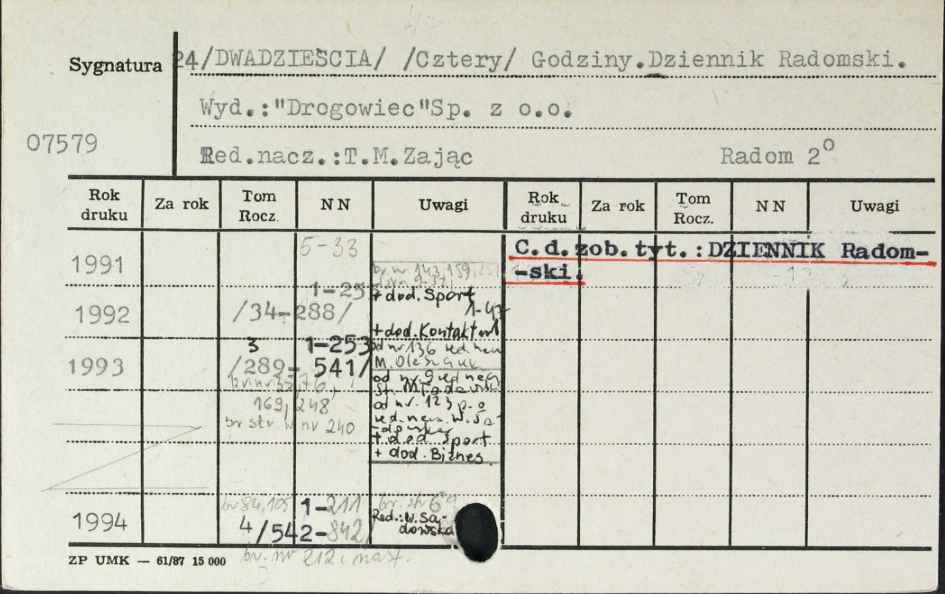 Sygnatura
24/DWADZIEŚCIA/ /Cztery/ Godziny.Dziennik Radomski.
Wyd.:"Drogowiec"Sp. z o.o.
07579
Red.nacz.:T.M.Zając Radom 2°
Rok druku Za rok Tom Rocz. NN Uwagi Rok druku Za rok Tom Rocz. NN Uwagi
1991 5-33
C.d.zob.tyt.:DZIENNIK Radom-
-ski.
br. nr 143, 159,
1992 /34-288/ 1-25
+ dod. Sport
1-47
+ dod. Kontakt
1993 3 1-253
/289-541/
od nr 136 red. nacz.
br. nr 35, 76,
169, 248
br str w nr 240
od nr. 9 red nacz
od nr. 123 p.o
red. nacz. W. Sa-
+ dod Sport
+ dod. Biznes
1994 br 84, 105 1-211 br. str 6
4/542-842/
Red.: W. Sa-
dowska
br. nr 212 i nast.
ZP UMK — 61/87 15 000